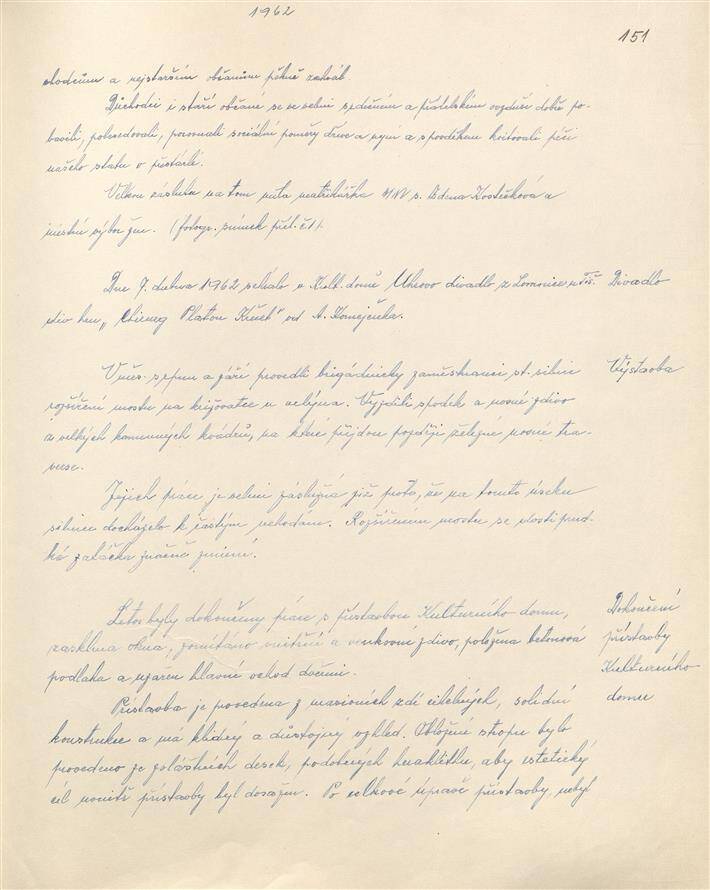 1962
151
chodcům a nejstarším občanům pěkně zahráli.
Důchodci i staří občané se ve velmi srdečném a přátelském ovzduší dobře po-
bavili, pohovořili, porovnali sociální poměry dříve a nyní a s povděkem kvitovali péči
našeho státu o přestárlé.
Velkou zásluhu na tom měla matrikářka MNV s. Zdena Kostečková a
místní výbor žen. (fotogr. snímek příl. č. 1).
Dne 7. dubna 1962 sehrálo v Kult. domě Uhrovo divadlo z Lomnice u Tiš. Divadlo
hru „Chirurg Platon Krečet" od A. Kornejčuka.
V měs. srpnu a září provedli brigádnicky zaměstnanci st. silnic Výstavba
rozšíření mostu na křižovatce u mlýna. Vyzdili spodek a nosné zdivo
z velkých kamenných kvádrů, na které přijdou později železné nosné tra-
verse.
Jejich práce je velmi záslužná již proto, že na tomto úseku
silnice docházelo k častým nehodám. Rozšířením mostu se prud-
ká zatáčka značně zmírní.
Letos byly dokončeny práce s přístavbou Kulturního domu, Dokončení
zasklena okna, omítáno vnitřní a venkovní zdivo, položena betonová přístavby
podlaha a uzavřen hlavní vchod dveřmi. Kulturního
Přístavba je provedena z masivních zdí cihelných, solidní domu
konstrukce a má klidný a důstojný vzhled. Obložení stropu bylo
provedeno ze zvláštních desek, podobných heraklitu, aby estetický
cíl vnitř přístavby byl dosažen. Po celkové úpravě přístavby, nebyl